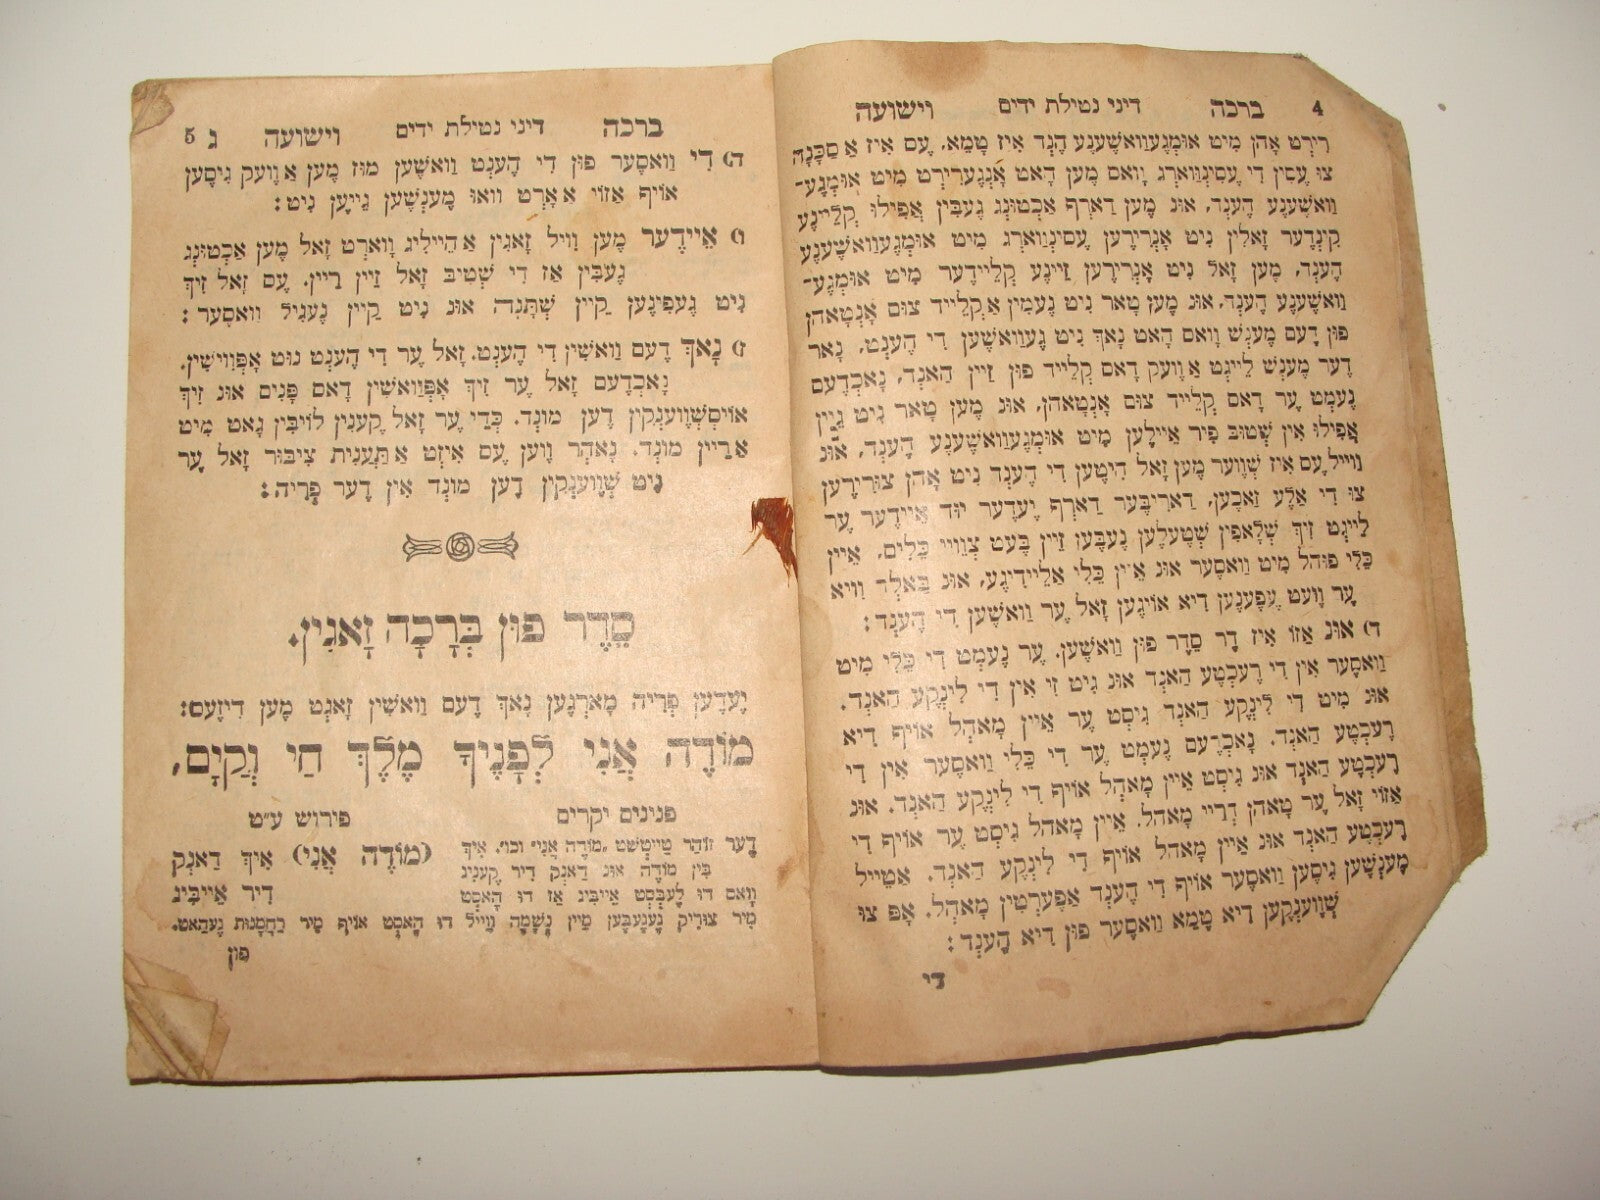 4 ברכה דיני נטילת ידים וישועה
רירט אָהן מיט אומגעוואַשענע הֶנד איז טָמֵא, עֶס איז אַ סַכָּנָה
צו עֶסין די עֶסינווארג וָואס מֶען האט אָנגערירט מיט אומגע־
וואַשענע הֶענד, אונ מֶען דארף אַכטונג געבין אֲפילו קְליינע
קינדער זאָלין ניט אָנרירען עֶסינווארג מיט אומגעוואַשענע
הֶענד, מֶען זאל ניט אָנרירען זיינע קְליידער מיט אומגע־
וואַשענע הֶענד, אונ מֶען טאר ניט נעמין אַ קלייד צום אָנטאהן
פון דֶעם מֶענש וָואס האט נאָך ניט געוואַשען די הֶענט, נאר
דֶער מֶענש לייגט אַוועק דאס קְלייד פון זיין האנד, נאָכדֶעם
נעמט עֶר דאס קְלייד צום אָנטאהן, אונ מֶען טאר ניט גיין
אֲפילו אין שְטוב פיר איילען מיט אומגעוואַשענע הֶענד, אונ
ווייל עֶס איז שְווער מֶען זאל היטען די הֶענד ניט אָהן צורירען
צו די אַלֶע זאכען, דאריבער דארף יֶעדער יוד איידער עֶר
לייגט זיך שְלאָפין שְטעלען נעבען זיין בֶעט צְוויי כֵּלים, איין
כְּלי פוהל מיט וואסער אונ אין כְּלי אליידיגע, אונ באלד וויא
עֶר וועט עֶפענען דיא אויגען זאל עֶר וואַשען די הֶענד:
ד) אונ אזו איז דֶר סֵדֶר פון וואַשען. עֶר נעמט די כְּלי מיט
וואסער אין די רֶעכטע האנד אונ גיט זי אין די לינקע האנד.
אונ מיט די לינקע האנד גיסט עֶר איין מאָהל אויף דיא
רֶעכטע האנד. נאָכדעם נעמט עֶר די כְּלי וואסער אין די
רֶעכטע האנד אונ גיסט איין מאָהל אויף די לינקע האנד. אונ
אזוי זאל עֶר טאָהן דְריי מאָהל. איין מאָהל גיסט עֶר אויף די
רֶעכטע האנד אונ איין מאָהל אויף די לינקע האנד. אטייל
מֶענשען גיסען וואסער אויף די הֶענד אפערטין מאָהל. אָפ צו
שְווענקען דיא טָמֵא וואסער פון דיא הֶענד:
די
ברכה דיני נטילת ידים וישועה ג 5
ה) די וואסער פון די הֶענט וואַשען מוז מֶען אַוועק גיסען
אויף אזוי אאָרט וואו מֶענשען גייען ניט:
ו) איידער מֶען וויל זאָגין אהייליג ווארט זאל מֶען אכטונג
געבין אז די שְטיב זאל זיין ריין. עֶס זאל זיך
ניט געפינען קיין שְתָּנה אונ ניט קיין נעגיל וואסער:
ז) נאָך דֶעם וואַשין די הֶענט. זאל עֶר די הֶענט גוט אָפווישין.
נאָכדֶעם זאל עֶר זיך אָפּוואשין דאס פָּנים אונ זיך
אויסשְווענקין דֶען מונד. כְּדי עֶר זאל קֶענין לויבין גאט מיט
א ריין מונד. נאָהר ווען עֶס איזט א תַּענית ציבור זאל עֶר
ניט שְווענקין דֶען מונד אין דֶער פְריה:
סֵדֶר פון בְּרָכָה זָאגין.
יֶעדֶען פְריה מארגען נאָך דֶעם וואַשין זאָגט מֶען דיזעס:
מוֹדֶה אֲנִי לְפָנֶיךָ מֶלֶךְ חַי וְקַיָם,
פנינים יקרים
דֶער זוהר טייטשט „מוֹדֶה אֲנִי״ וכו׳. איך
בין מוֹדֶה אונ דאנק דיר קֶעניג
וואס דו לֶעבסט אייביג אז דו האסט
מיר צוריק געגעבען מיין נְשָׁמָה ווייל דו האסט אויף מיר רַחְמָנוּת געהאט.
פירוש ע״ט
(מוֹדֶה אֲנִי) איך דאנק
דיר אייביג
פון